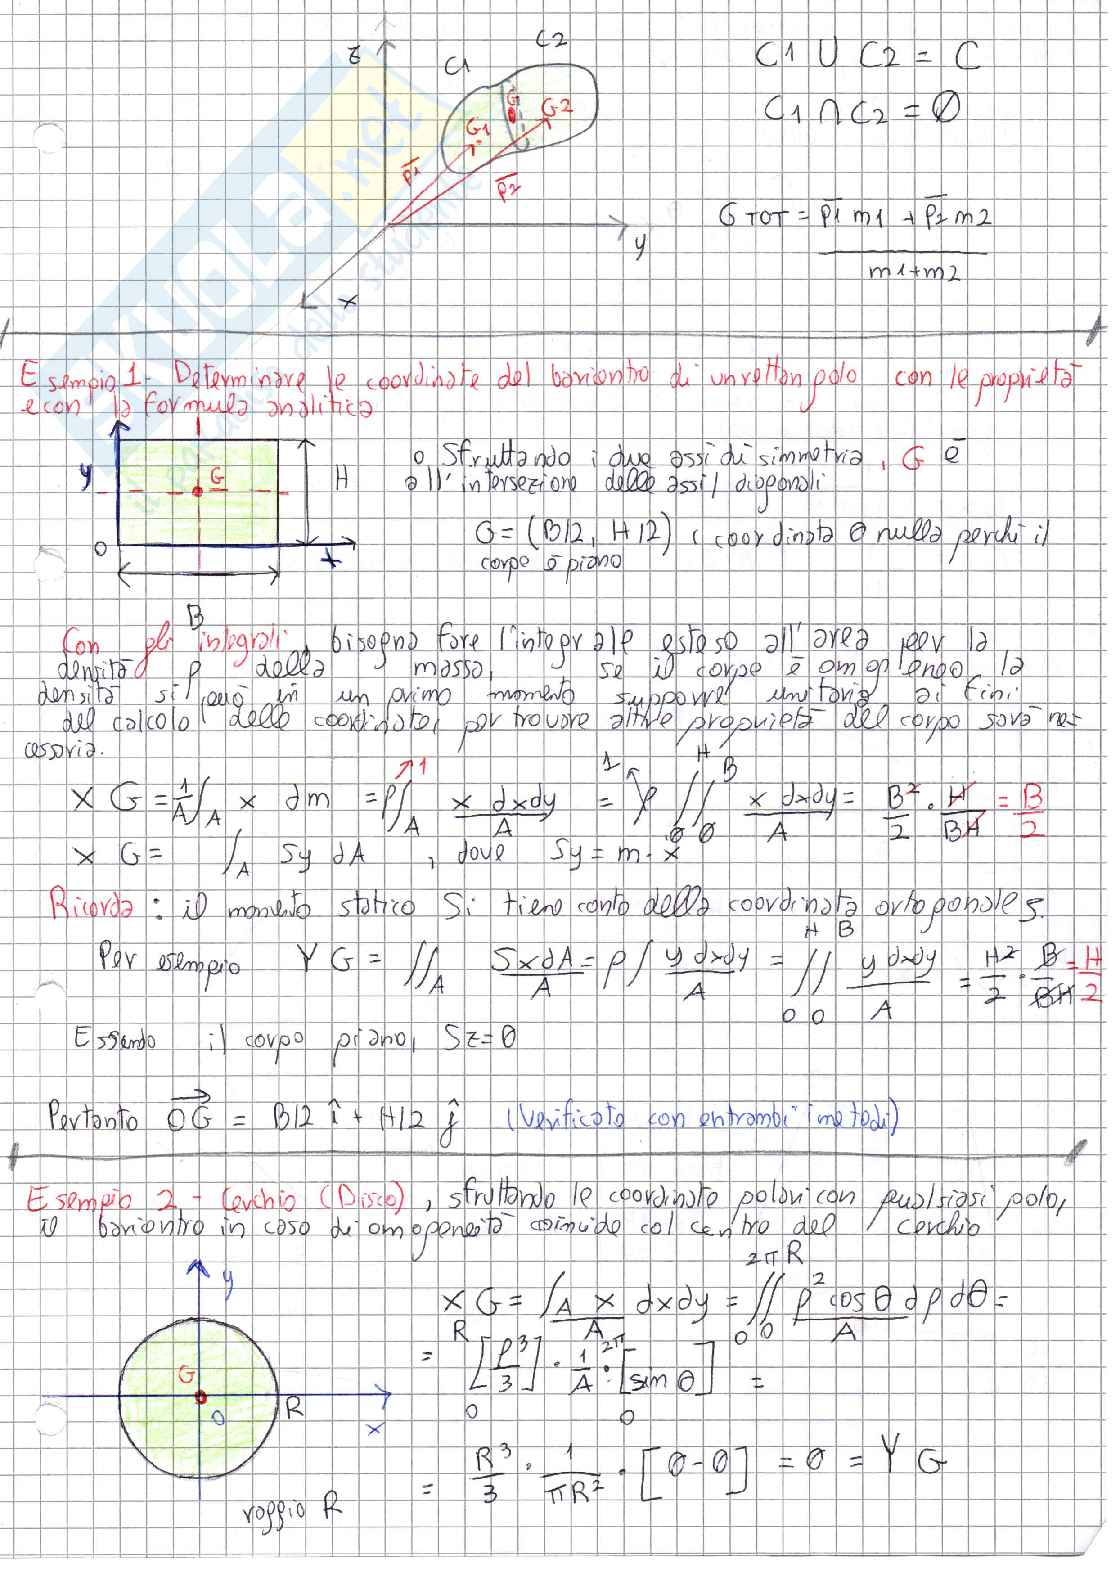 z
C1
C2
C1 ∪ C2 = C
G
G1
G2
C1 ∩ C2 = ∅
p1
p2
y
x
G TOT = p1 m1 + p2 m2
m1+m2
Esempio 1 - Determinare le coordinate del baricentro di un rettangolo con le proprietà
e con la formula analitica
y
G
H
O
x
B
o Sfruttando i due assi di simmetria, G è
all'intersezione delle assi/ diagonali
G = (B/2, H/2) ( coordinata 0 nulla perchi il
corpo è piano
Con gli integrali, bisogna fare l'integrale esteso all'area per la
densità ρ della massa, se il corpo è omogeneo la
densità si può in un primo momento supporre unitaria ai fini
del calcolo delle coordinate, per trovare altre proprietà del corpo sarà nec
essaria.
X G = 1/A ∫A x dm = ρ∫A x dxdy / A = ρ ∫0^H ∫0^B x dxdy / A = B²/2 · H/BH = B/2
1
1
X G = ∫A Sy dA , dove Sy = m · x
Ricorda: il momento statico Si tiene conto della coordinata ortogonale s.
Per esempio Y G = ∫∫A Sx dA / A = ρ ∫ y dxdy / A = ∫0^H ∫0^B y dxdy / A = H²/2 · B/BH = H/2
Essendo il corpo piano, Sz = 0
Pertanto OG = B/2 î + H/2 ĵ (Verificato con entrambi i metodi)
Esempio 2 - Cerchio (Disco), sfruttando le coordinate polari con qualsiasi polo,
il baricentro in caso di omogeneità coincide col centro del cerchio
y
G
O
R
x
raggio R
X G = ∫A x dxdy / A = ∫0^2π ∫0^R ρ² cos θ dρ dθ / A =
= [ρ³/3]0^R · 1/A · [sin θ]0^2π =
= R³/3 · 1/πR² · [0-0] = 0 = Y G
SKUOLA.net